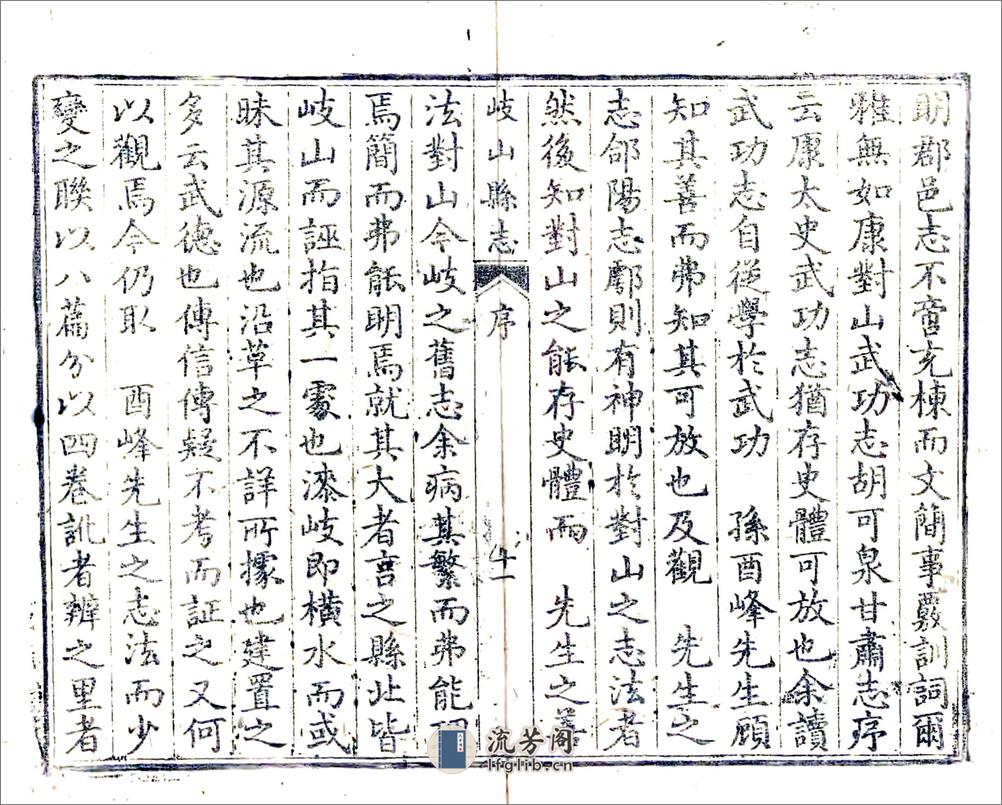 明郡邑志不啻充棟而文簡事覈訓詞爾
雅無如康對山武功志胡可泉甘肅志序
云康大史武功志猶存史體可放也余讀
武功志自從學於武功 孫酉峰先生顧
知其善而弗知其可放也及觀 先生之
志郃陽志鄠則有神明於對山之志法者
然後知對山之能存史體而 先生之善
岐山縣志 序
法對山今岐之舊志余病其繁而弗能
焉簡而弗能明焉就其大者言之縣北皆
岐山而誣指其一處也漆岐即橫水而或
昧其源流也沿革之不詳所據也建置之
多云武德也傳信傳疑不考而証之又何
以觀焉今仍取 酉峰先生之志法而少
變之聯以八篇分以四卷訛者辨之里者
流芳阁
lfglib.cn